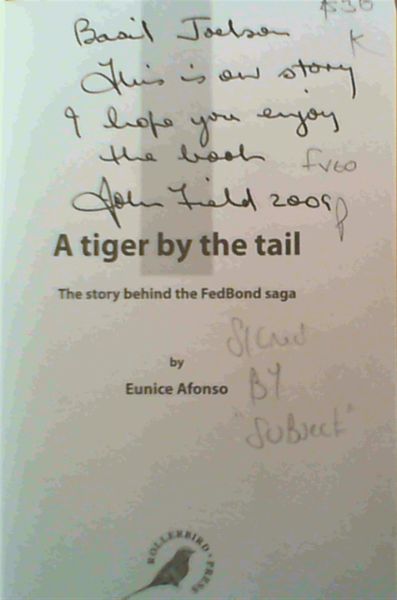 $30
K
Basil Joelson
This is our story
I hope you enjoy
the book
John Field 2009
A tiger by the tail
The story behind the FedBond saga
by
Eunice Afonso
Signed
BY
"SUBJECT"
ROLLERBIRD PRESS